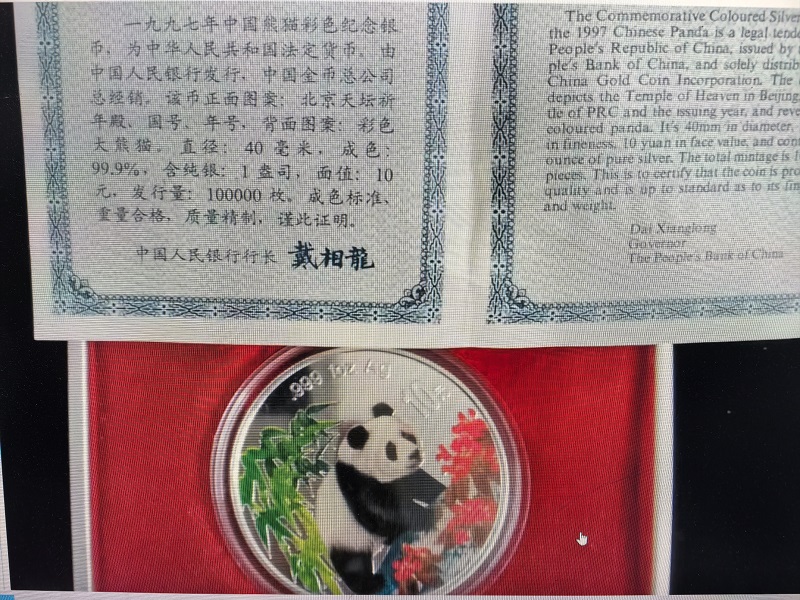 一九九七年中国熊猫彩色纪念银
币，为中华人民共和国法定货币。由
中国人民银行发行，中国金币总公司
总经销。该币正面图案：北京天坛祈
年殿、国号、年号，背面图案：彩色
大熊猫。直径：40 毫米，成色：
99.9%，含纯银：1 盎司，面值：10
元，发行量：100000 枚。成色标准、
重量合格，质量精制，谨此证明。
中国人民银行行长 戴相龍
The Commemorative Coloured Silver
the 1997 Chinese Panda is a legal tende
People's Republic of China, issued by
ple's Bank of China, and solely distrib
China Gold Coin Incorporation. The
depicts the Temple of Heaven in Beijing,
tle of PRC and the issuing year, and reve
coloured panda. It's 40mm in diameter,
in fineness, 10 yuan in face value, and cont
ounce of pure silver. The total mintage is 1
pieces. This is to certify that the coin is pro
quality and is up to standard as to its fin
and weight.
Dai Xianglong
Governor
The People's Bank of China
.999 1oz Ag 10元